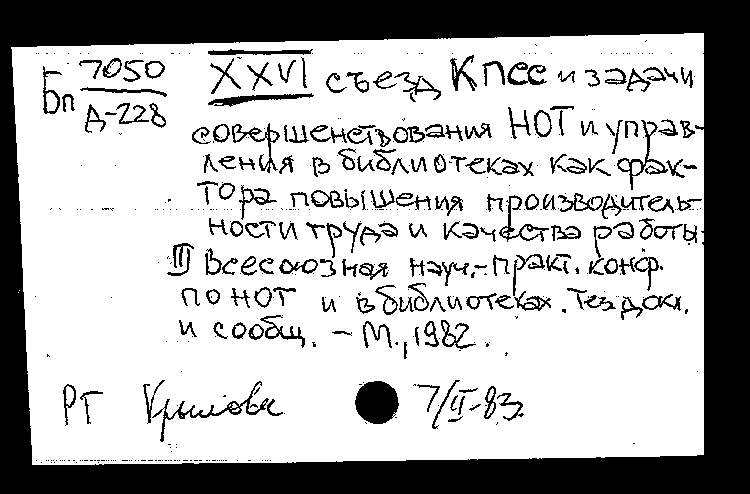 Бп 7050
Д-228
XXVI съезд КПСС и задачи
совершенствования НОТ и управ-
ления в библиотеках как фак-
тора повышения производитель-
ности труда и качества работы:
III Всесоюзная науч.-практ. конф.
по НОТ и в библиотеках. Тез докл.
и сообщ. – М., 1982.
РТ Крылова 7/II-83.